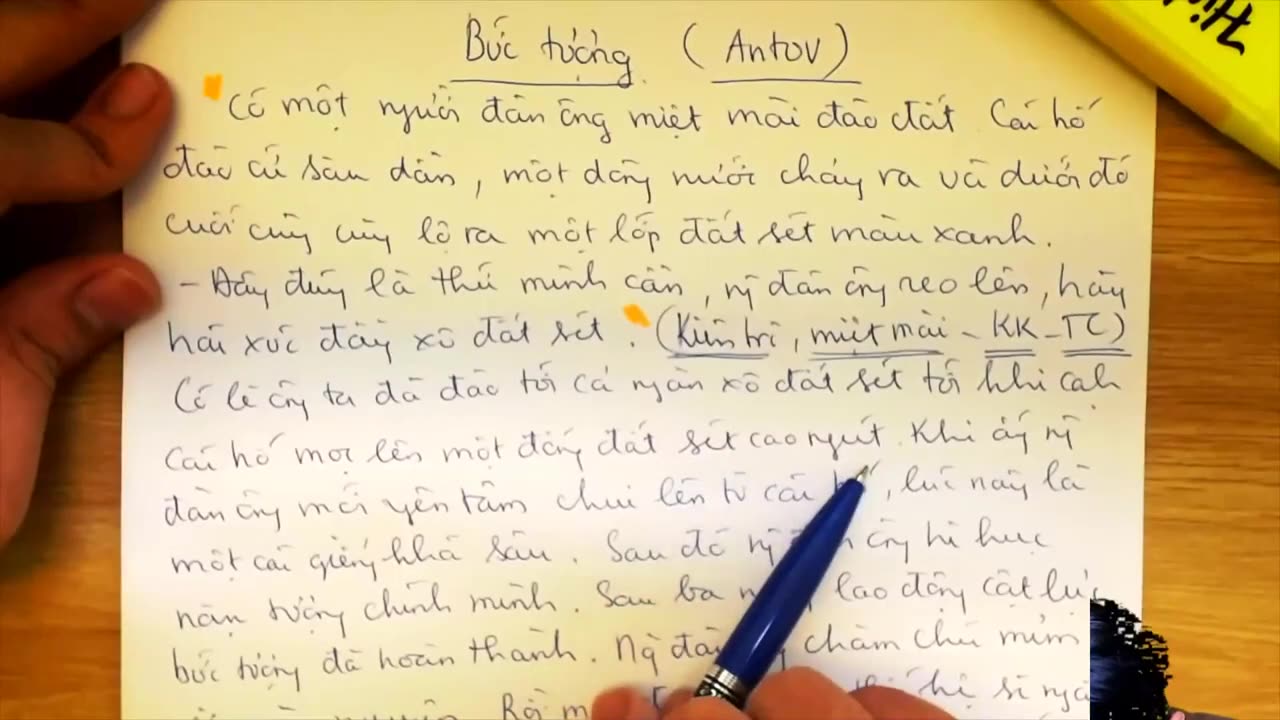 Bức tượng (Antov)
Có một người đàn ông miệt mài đào đất Cái hố
đào cứ sâu dần, một dòng nước chảy ra và dưới đó
cuối cùng cũng lộ ra một lớp đất sét màu xanh.
- Đây đúng là thứ mình cần, ng đàn ông reo lên, hăng
hái xúc đầy xô đất sét. (Kiên trì, miệt mài - KK - TC)
Có lẽ ông ta đã đào tới cả ngàn xô đất sét tới khi cạnh
Cái hố mọc lên một đống đất sét cao ngút. Khi ấy ng
đàn ông mới yên tâm chui lên từ cái, lúc này là
một cái giếng khá sâu. Sau đó ng ông hì hục
nặn tượng chính mình. Sau ba lao động cật lực
bức tượng đã hoàn thành. Ng chăm chú
Rồi